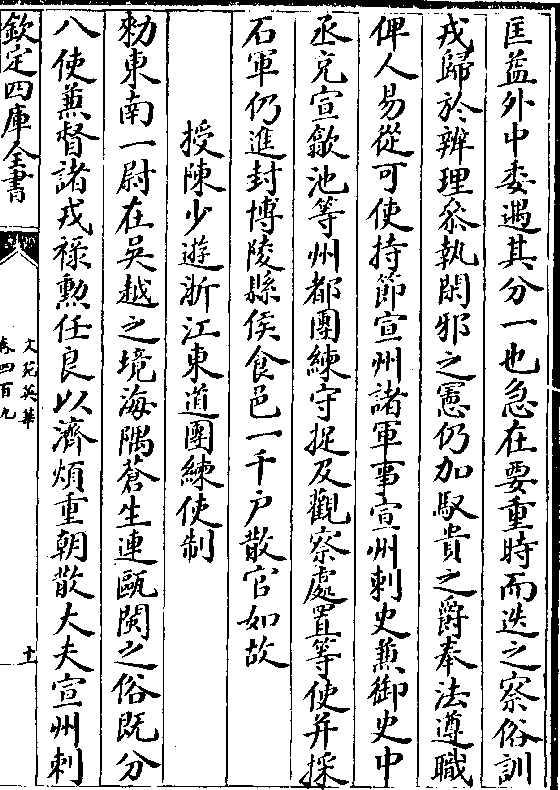 匡益外中委遇其分一也急在要重時而迭之察俗訓
戎歸於辨理叅執閑邪之憲仍加馭貴之爵奉法遵職
俾人易從可使持節宣州諸軍事宣州刺史兼御史中
丞充宣歙池等州都團練守捉及觀察處置等使并採
石軍仍進封博陵縣侯食邑一千户散官如故
授陳少遊浙江東道團練使制
勑東南一尉在吳越之境海隅蒼生連甌閩之俗既分
八使兼督諸戎祿勲任良以濟煩重朝散大夫宣州刺
欽定四庫全書
文苑英華
卷四百九
十